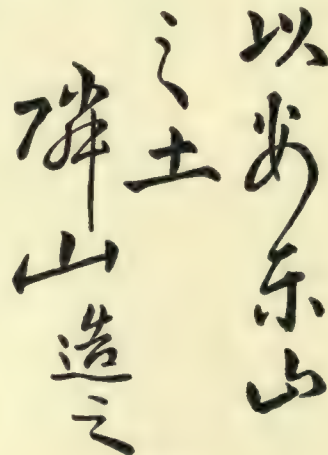 以安东山
之土
隣山造之